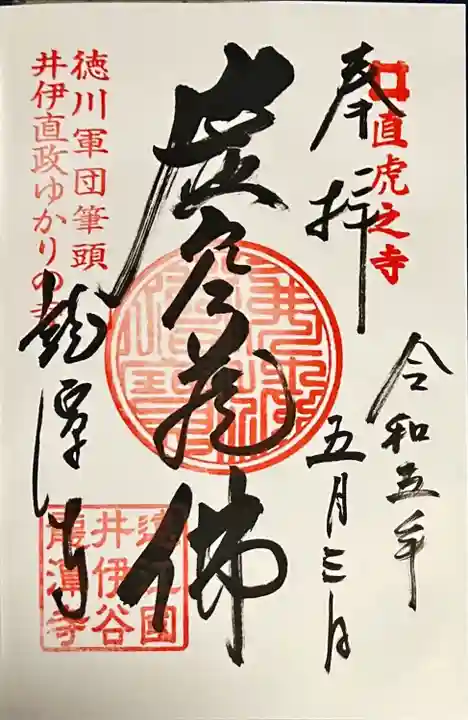 直虎之寺
奉拝
令和五年
五月三日
虚空蔵佛
徳川軍団筆頭
井伊直政ゆかりの寺
龍潭寺
遠江國
井伊谷
龍潭寺